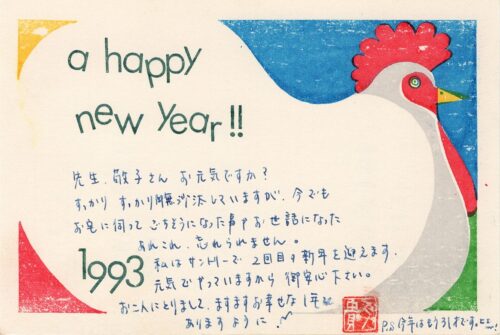 a happy
new year!!
先生、敬子さん お元気ですか?
すっかり すっかり御無沙汰していますが、今でも
お宅に伺って ごちそうになった事やお世話になった
あれこれ、忘れられません。
私はサントリーで 2回目の新年を迎えます。
元気でやっていますから 御安心下さい。
お二人にとりまして、ますますお幸せな1年で
ありますように!
1993
P.S 今年は